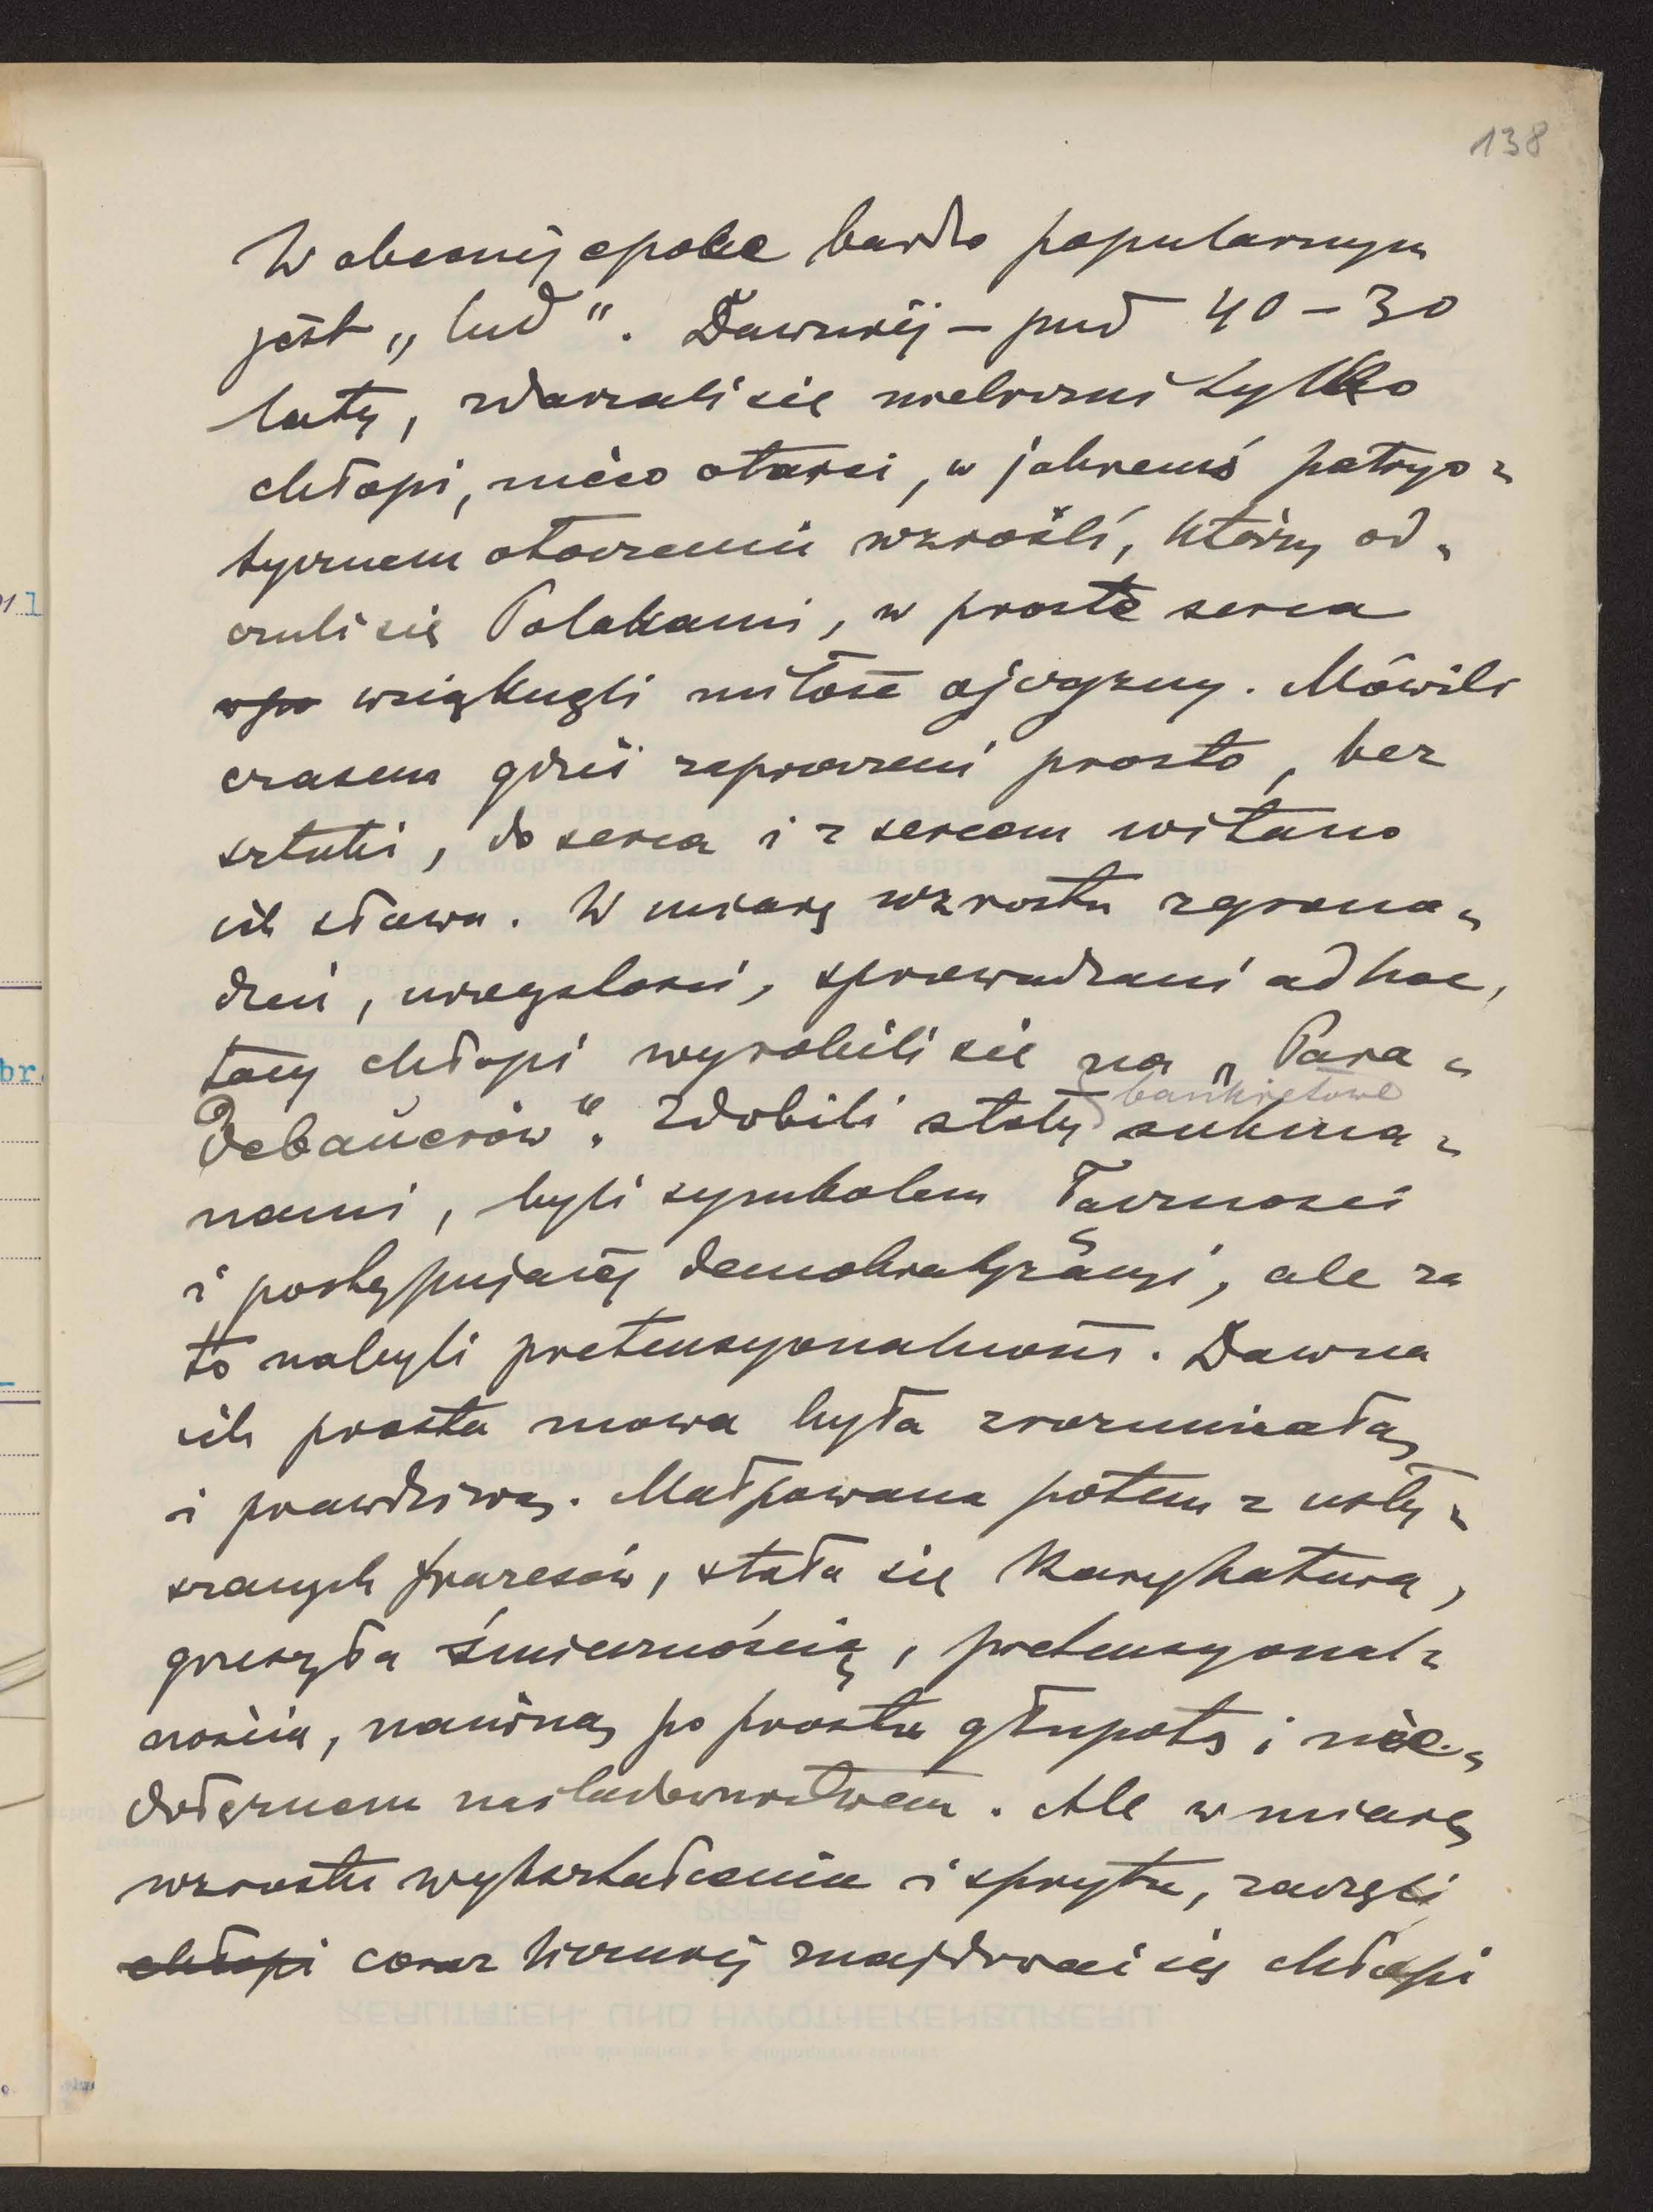 138
W obecnéj epoce bardzo popularnym
jest „lud". Dawniéj – przed 40 – 30
laty, zdarzali się nieliczni tylko
chłopi, nieco otarci, w jakiemś patryo-
tycznem otoczeniu wzrośli, którzy od-
czuli się Polakami, w proste serca
wsiąknęli miłość ojczyzny. Mówili
czasem gdzieś zaproszeni prosto, bez
sztuki, do serca i z sercem witano
ich słowa. W miarę wzrostu zgroma-
dzeń, uroczystości, sprowadzani ad hoc,
tacy chłopi wyrobili się na „Para-
debauerów". Zdobili stoły bankietowe sukma-
nami, byli symbolem łączności
i postępującéj demokratyzacyi, ale za
to nabyli pretensyonalności. Dawna
ich prosta mowa była zrozumiałą
i prawdziwą. Małpowana potem z usły-
szanych frazesów, stała się karykaturą,
grzeszyła śmiesznością, pretensyonal-
nością, naiwną po prostu głupotą i nie-
dołężnem naśladownictwem. Ale w miarę
wzrostu wykształcenia i sprytu, zaczęli
chłopi coraz liczniéj znajdować się chłopi